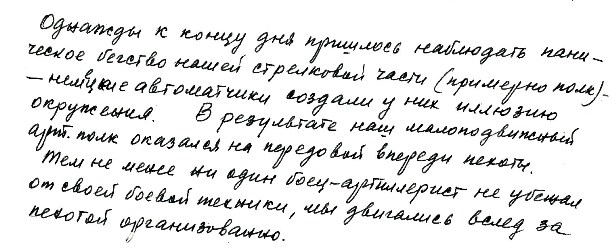 Однажды к концу дня пришлось наблюдать пани-
ческое бегство нашей стрелковой части (примерно полк)-
- немецкие автоматчики создали у них иллюзию
окружения. В результате наш малоподвижный
арт. полк оказался на передовой впереди пехоты.
Тем не мене ни один боец-артиллерист не убежал
от своей боевой техники, мы двигались вслед за
пехотой организованно.